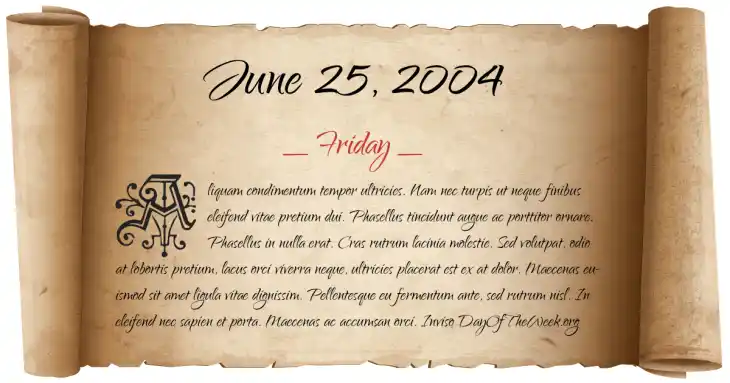 June 25, 2004
_ Friday _
Aliquam condimentum tempor ultricies. Nam nec turpis ut neque finibus
eleifend vitae pretium dui. Phasellus tincidunt augue ac porttitor ornare.
Phasellus in nulla erat. Cras rutrum lacinia molestie. Sed volutpat, odio
at lobortis pretium, lacus orci viverra neque, ultricies placerat est ex at dolor. Maecenas eu-
ismod sit amet ligula vitae dignissim. Pellentesque eu fermentum ante, sed rutrum nisl. In
eleifend nec sapien et porta. Maecenas ac accumsan orci. Invisa DayOfTheWeek.org